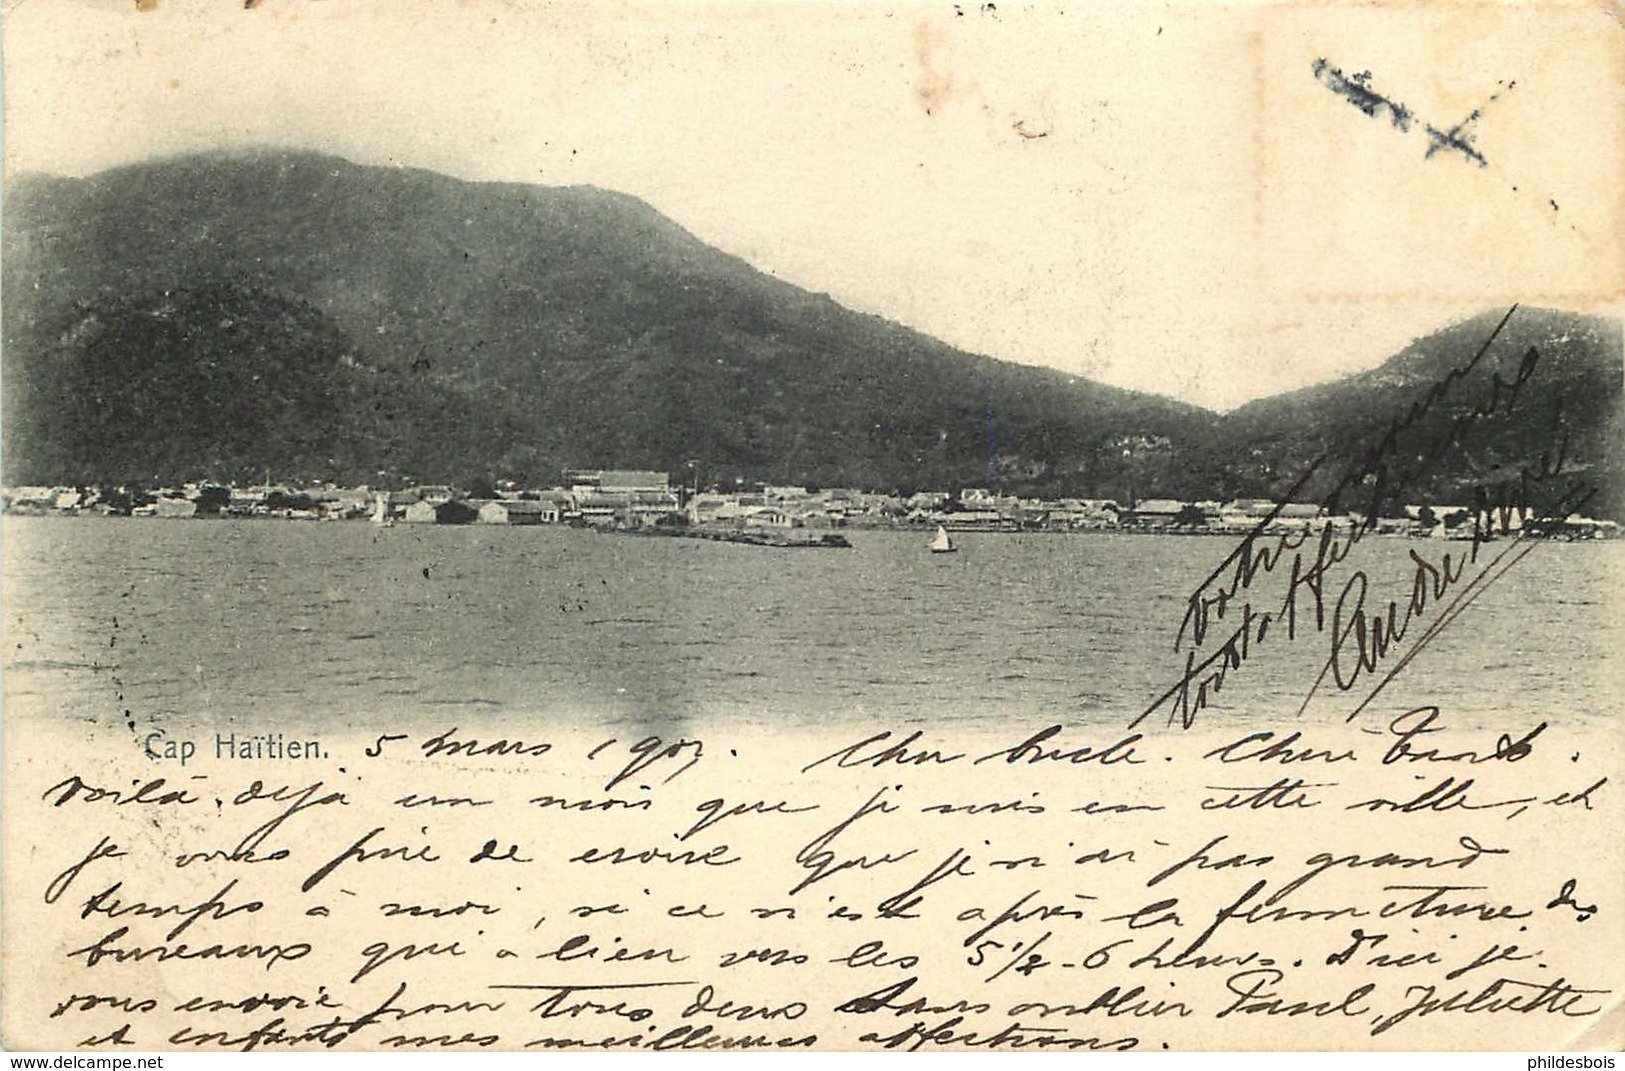 Cap Haïtien. 5 mars 190 . Cher Oncle. Chère Tante.
Voilà déjà un mois que je suis en cette ville, et
je vous prie de croire que je n'ai pas grand
temps à moi, si ce n'est après la fermeture des
bureaux qui a lieu vers les 5 1/2 - 6 heures. D'ici je
vous envoie pour tous deux sans oublier Paul, Juliette
et enfants mes meilleures affections.
Votre neveu
tout affectionné
André
delcampe.net
phildesbois